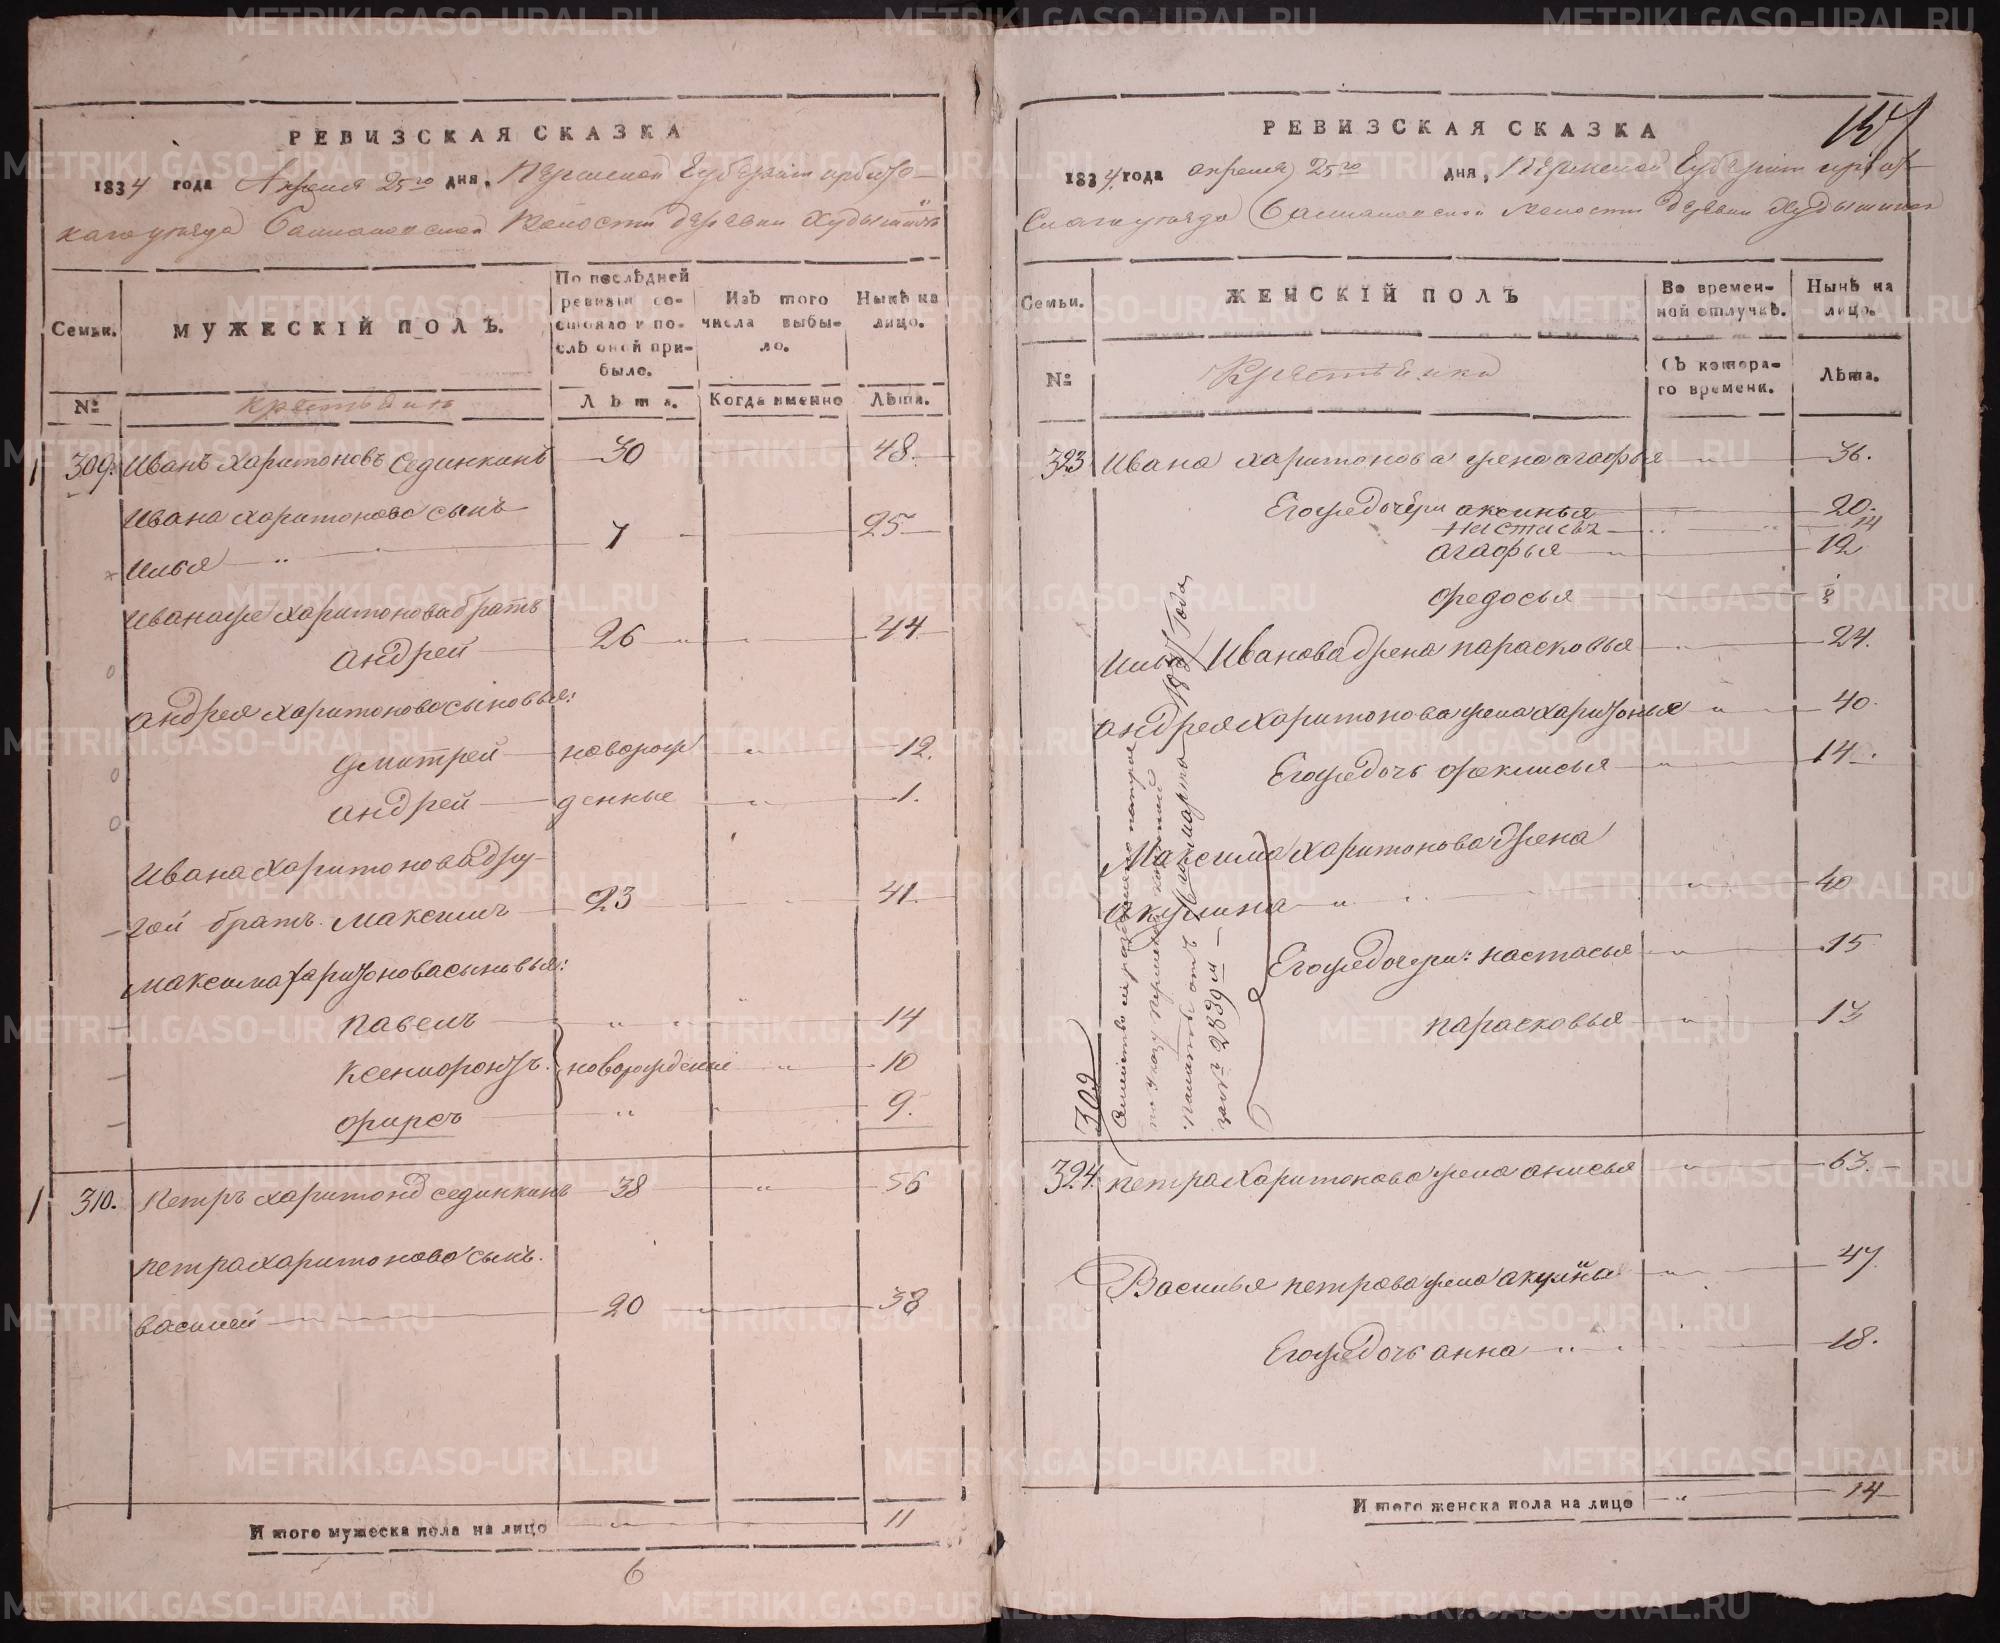 РЕВИЗСКАЯ СКАЗКА
1834 года Апреля 25го дня, Пермской Губернiи ирбитс-
каго уезда волости деревни
Семьи.
МУЖЕСКІЙ ПОЛЪ.
По послѣдней ревизіи состояло и послѣ оной прибыло.
Изъ того числа выбыло.
Нынѣ на лицо.
№
крестьяня
Лѣта.
Когда именно
Лѣта.
309. Иванъ Харитоновъ Сединкинъ 30 48.
Ивана Харитонова сынъ
Илья 7 25
Ивана же Харитонова братъ
андрей 26 44
андрея Харитонова сыновья:
дмитрей новорож 12.
андрей денные 1.
Ивана Харитонова дру-
гой братъ Максимъ 23 41.
Максима Харитонова сыновья:
павелъ 14
ксенофонтъ новорожденные 10
фирсъ 9.
310. Петръ Харитонд сединкинъ 38 56
петра Харитонова сынъ.
василей 20 38
И того мужеска пола на лицо 11
6
РЕВИЗСКАЯ СКАЗКА
1834 года апреля 25го дня, Пермской Губернiи ирбит-
скаго уезда волости деревни
Семьи.
ЖЕНСКІЙ ПОЛЪ
Во временной отлучкѣ.
Нынѣ на лицо.
№
Съ котораго времени.
Лѣта.
323 Ивана Харитонова жена агафья 36.
Его же дочери аксинья 20.
настасья 14
агафья 12
федосья
Ильи Иванова жена парасковья 24.
андрея Харитонова жена 40.
Его же дочь феклисья 14.
Максима Харитонова жена
акулина 40
Его же дочери: настасья 15
парасковья 13
309
324. петра Харитонова жена анисья 63.
Василья петрова жена акулина 47.
Его же дочь анна 18.
И того женска пола на лицо 14
METRIKI.GASO-URAL.RU